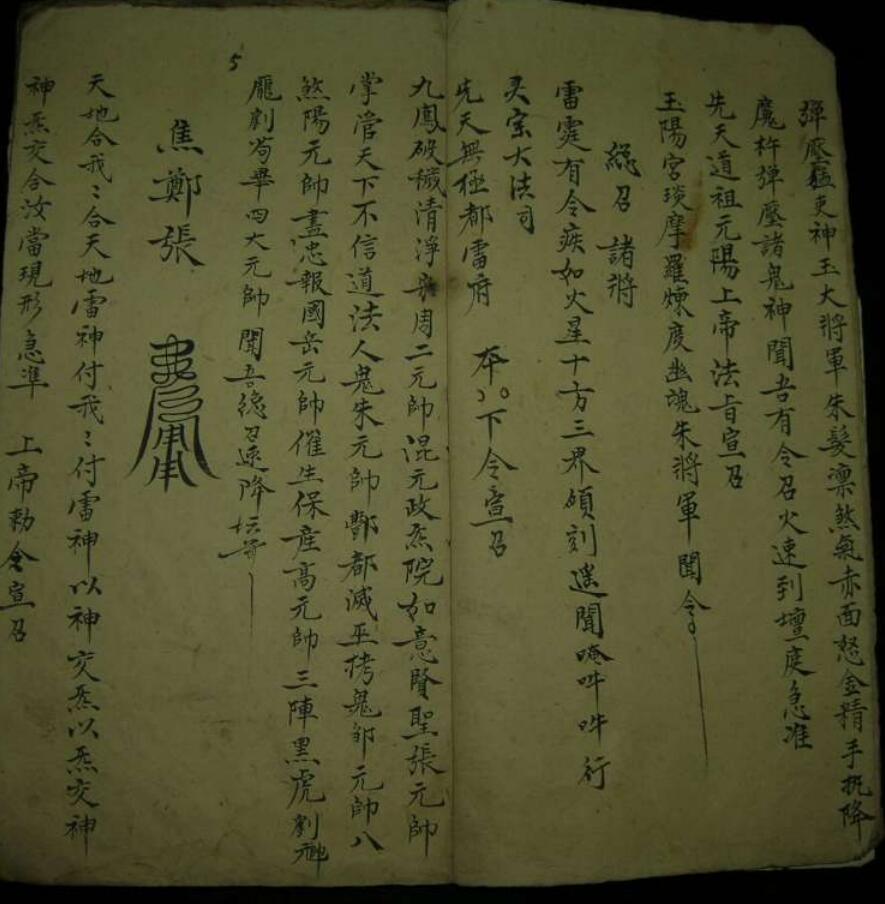 彈壓猛吏神王大將軍朱髮凛煞氣赤面怒金精手執降
魔杵彈壓諸鬼神聞吾有令召火速到壇庭急准
先天道祖元陽上帝法旨宣召
玉陽宮琰摩羅煉度幽魂朱將軍聞令
總召諸將
雷霆有令疾如火星十方三界頃刻遥聞唵吽吽行
灵宝大法司
先天無極都雷府 本 下令宣召
九鳳破穢清淨 周二元帥混元政炁院如意賢聖張元帥
掌管天下不信道法人鬼朱元帥酆都滅巫拷鬼 元帥八
煞陽元帥盡忠報國岳元帥催生保産高元帥三陣黑虎劉元帥
龐劉苟畢四大元帥聞吾總召速降坛
5
焦鄭張
天地合我〻合天地雷神付我〻付雷神以神交炁以炁交神
神炁交合汝當現形急準 上帝勅令宣召